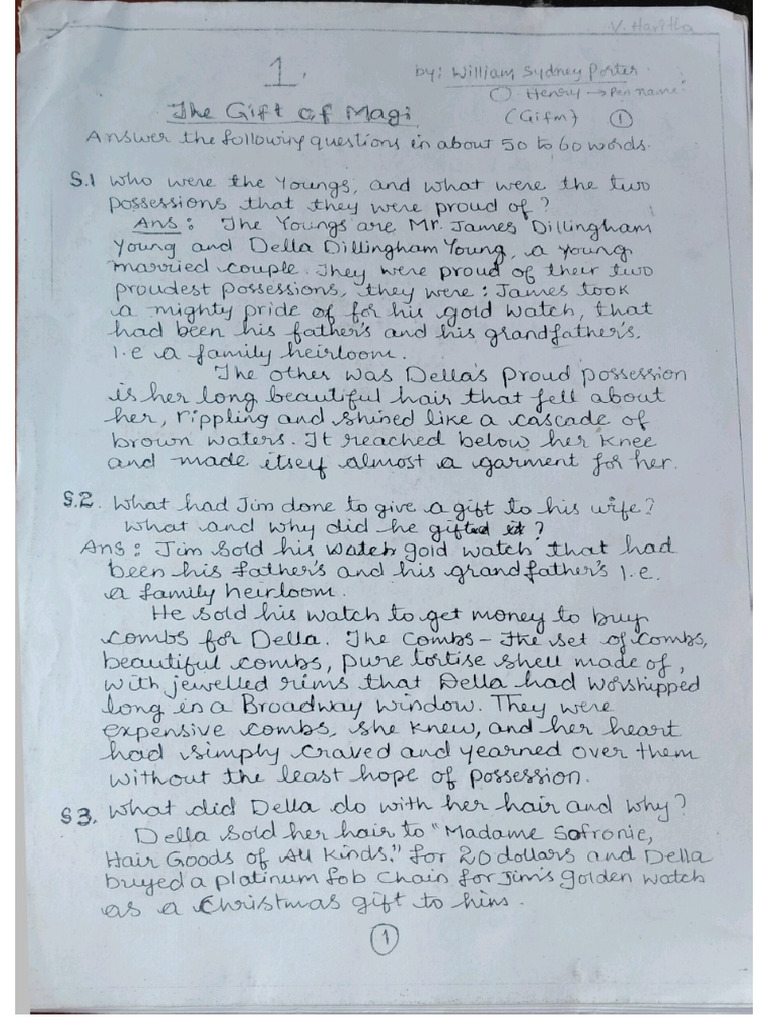 V. Haritha
1.
by: William Sydney Porter
O Henry → Pen name
The Gift of Magi
(Gifm) 1
Answer the following questions in about 50 to 60 words.
S.1 Who were the Youngs, and what were the two
possessions that they were proud of?
Ans: The Youngs are Mr. James Dillingham
Young and Della Dillingham Young, a young
married couple. They were proud of their two
proudest possessions, they were: James took
a mighty pride of for his gold watch, that
had been his father's and his grandfather's.
I.e a family heirloom.
The other was Della's proud possession
is her long beautiful hair that fell about
her, rippling and shined like a cascade of
brown waters. It reached below her knee
and made itself almost a garment for her.
S.2. What had Jim done to give a gift to his wife?
What and why did he gifted it?
Ans: Jim sold his watch gold watch that had
been his father's and his grandfather's I.e.
a family heirloom.
He sold his watch to get money to buy
combs for Della. The Combs - the set of combs,
beautiful combs, pure tortise shell made of,
with jewelled rims that Della had worshipped
long in a Broadway window. They were
expensive combs, she knew, and her heart
had simply craved and yearned over them
without the least hope of possession.
S3. What did Della do with her hair and why?
Della sold her hair to "Madame Sofronie,
Hair Goods of All Kinds." for 20 dollars and Della
buyed a platinum fob chain for Jim's golden watch
as a Christmas gift to him.
1